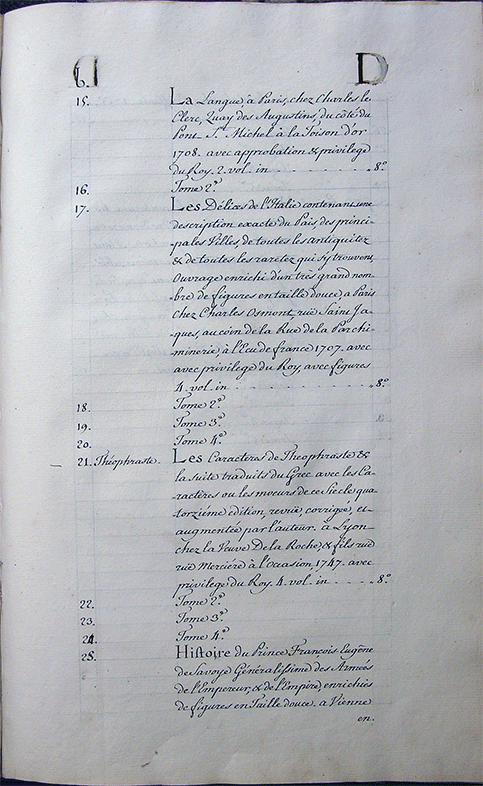 D
b.
15. La Langue, à Paris, chez Charles le
Clerc, Quay des Augustins, du côté du
Pont St. Michel à la Toison d'or
1708. avec approbation & privilege
du Roy. 2. vol. in - - - - - 8°
16. Tome 2e.
17. Les Délices de l'Italie contenant une
description exacte du Païs, des princi-
pales Villes, de toutes les antiquitez
& de toutes les raretez qui s'y trouvent,
Ouvrage enrichi d'un très grand nom-
bre de figures en taille douce, a Paris
chez Charles Osmont, rüe Saint Ja-
ques, au coin de la Rue de la Parchi-
minerie, à l'Ecu de france 1707. avec
avec privilege du Roy, avec figures
4. vol. in - - - - - - - - 8°
18. Tome 2e.
19. Tome 3e.
20. Tome 4e.
21. Théophraste. Les Caractères de Theophraste &
la suite traduits du Grec avec les Ca-
ractères ou les moeurs de ce Siècle qua-
torziéme édition, revüe, corrigée, et
augmentée par l'auteur. à Lyon
chez la Veuve De la Roche, & fils rüe
rüe Merciere à l'Occasion, 1747. avec
privilege du Roy. 4. vol. in - - - - 8°
22. Tome 2e.
23. Tome 3e.
24. Tome 4e.
25. Histoire du Prince François Eugêne
de Savoye Généralissime des Armées
de l'Empereur, & de l'Empire, enrichies
de figures en Taille douce. a Vienne
en.